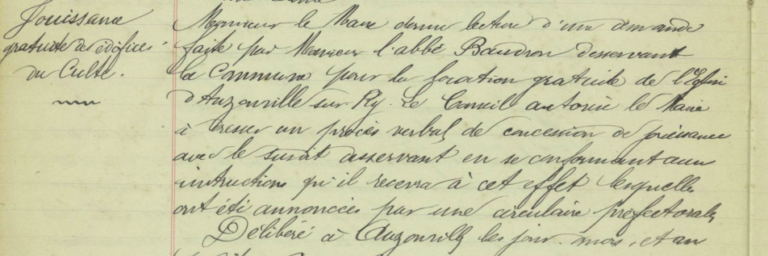 Jouissance
gratuite des édifices
du Culte.
Monsieur le Maire donne lecture d'une demande
faite par Monsieur l'abbé Baudron desservant
la Commune pour la location gratuite de l'Eglise
d'Auzouville sur Ry. Le Conseil autorise le Maire
à dresser un procès verbal de concession de jouissance
avec le desservant en se conformant aux
instructions qu'il recevra à cet effet lesquelles
ont été annoncées par une circulaire préfectorale
Délibéré à Auzouville les jour, mois, et an